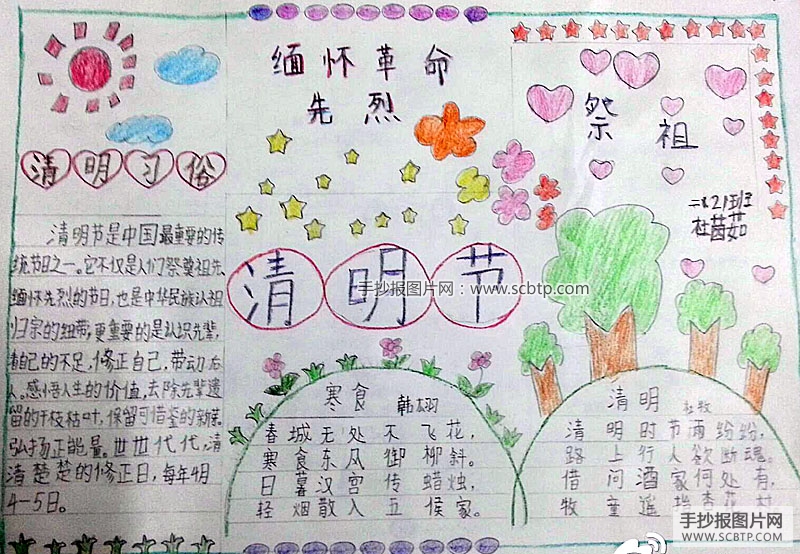 缅怀革命
先烈
祭祖
二(2)班
杜茵茹
清明习俗
清明节是中国最重要的传
统节日之一。它不仅是人们祭奠祖先、
缅怀先烈的节日,也是中华民族认祖
归宗的纽带,更重要的是认识先辈,
自己的不足,修正自己,带动
感悟人生的价值,去除先辈遗
留的干枝枯叶,保留可借鉴的新
弘扬正能量。世世代代,清
清楚楚的修正日,每年4月
4-5日。
清明节
手抄报图片网:www.scbtp.com
寒食 韩翃
春城无处不飞花,
寒食东风御柳斜。
日暮汉宫传蜡烛,
轻烟散入五侯家。
清明 杜牧
清明时节雨纷纷,
路上行人欲断魂。
借问酒家何处有,
牧童遥指杏花村
手抄报图片网
WWW.SCBTP.COM